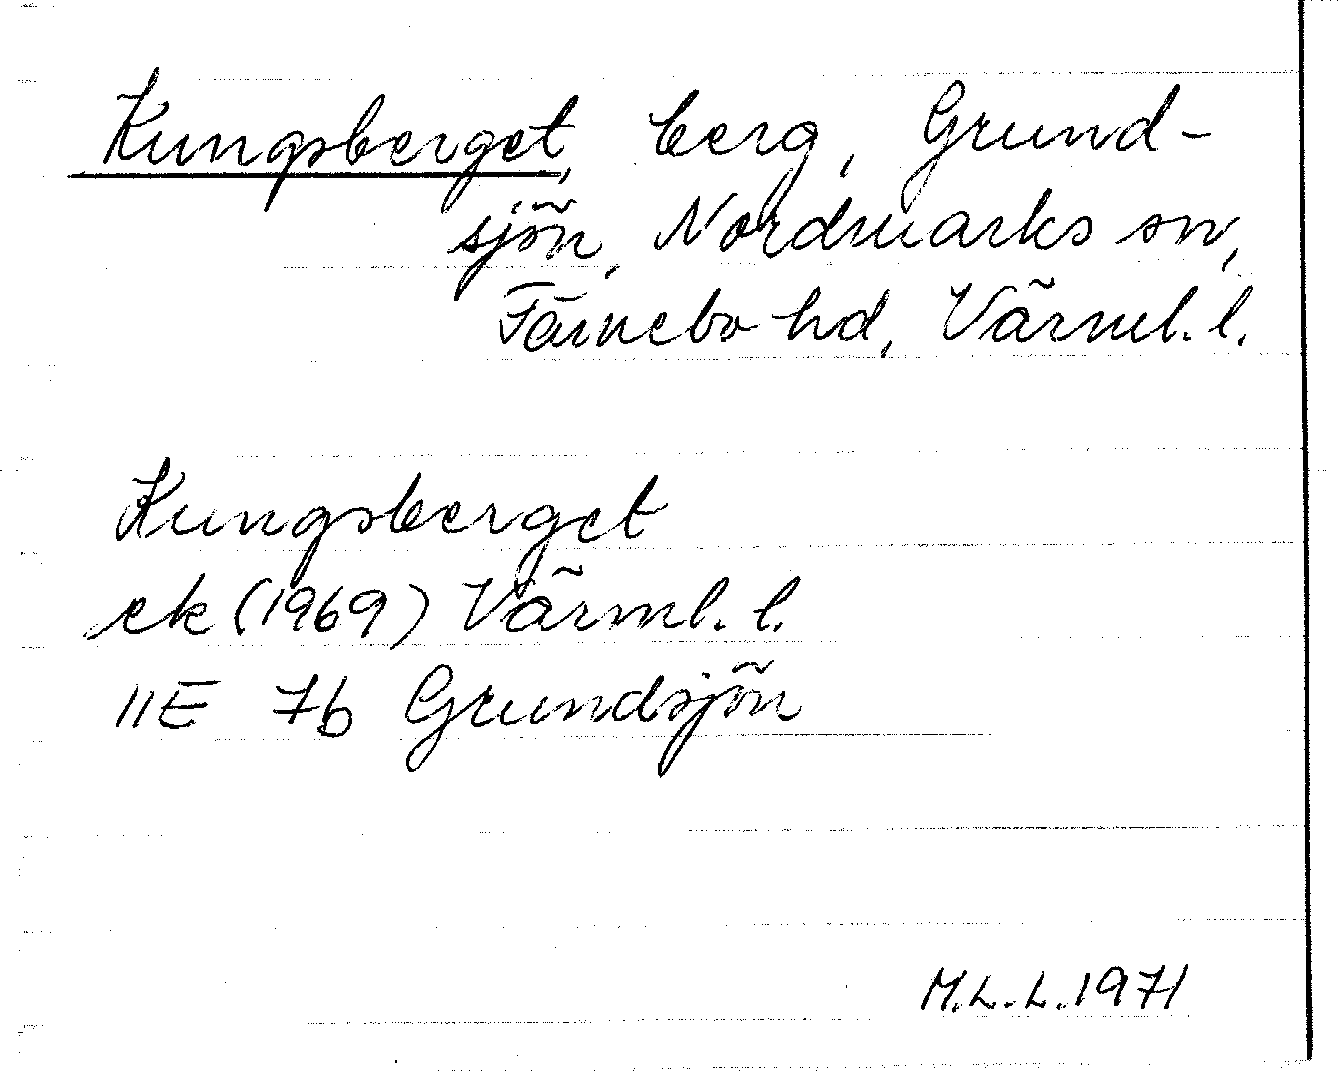 Kungsberget, berg, Grund-
sjön, Nordmarks sn,
Färnebo hd, Värml. l.
Kungsberget
ek (1969) Värml. l.
11E 7b Grundsjön
M.L.L. 1971